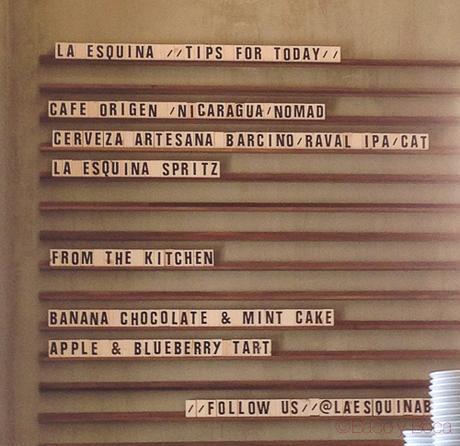 LA ESQUINA //TIPS FOR TODAY//
CAFE ORIGEN /NICARAGUA/NOMAD
CERVEZA ARTESANA BARCINO/RAVAL IPA/CAT
LA ESQUINA SPRITZ
FROM THE KITCHEN
BANANA CHOCOLATE & MINT CAKE
APPLE & BLUEBERRY TART
//FOLLOW US//@LAESQUINAB